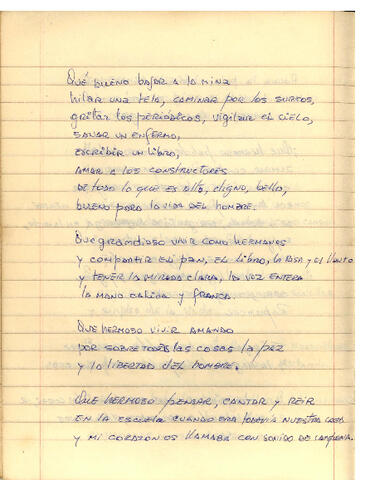 Qué bueno bajar a la mina
hilar una tela, caminar por los surcos,
gritar los periódicos, vigilar el cielo,
sanar un enfermo,
escribir un libro,
amar a los constructores
de todo lo que es alto, digno, bello,
bueno para la vida del hombre.
Que grandioso vivir como hermanos
y compartir el pan, el libro, la rosa y el llanto
y tener la mirada clara, la voz entera
la mano calida y franca.
Que hermoso vivir amando
por sobre todas las cosas la paz
y la libertad del hombre.
Que hermoso pensar, cantar y reir
en la escuela cuando era todavia nuestra casa
y mi corazon os llamaba con sonido de campana.